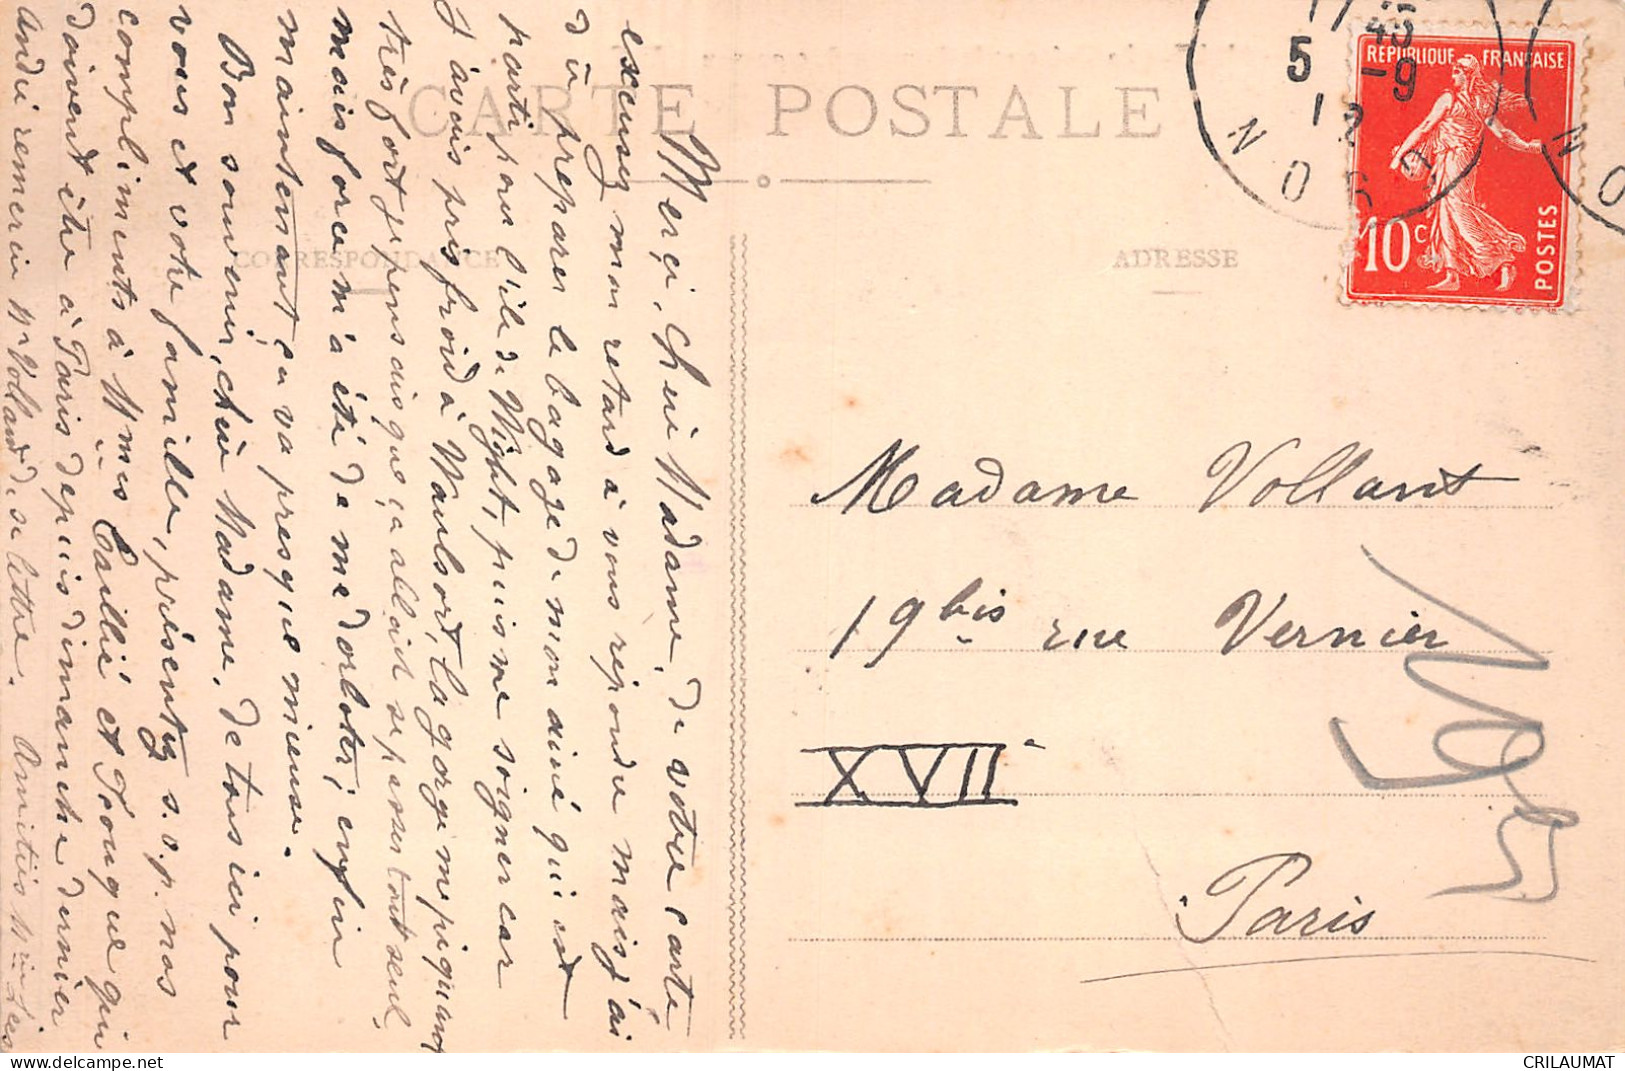 CARTE POSTALE
CORRESPONDANCE
ADRESSE
REPUBLIQUE FRANÇAISE
10c
POSTES
17 45
5 -9
12
Merci, chère Madame, de votre carte
excusez mon retard à vous répondre mais j'ai
dû préparer le bagage de mon aîné qui est
parti pour l'île de Wight, puis me soigner car
j'avais pris froid à Maulsort, la gorge me piquant
très fort je pensais que ça allait se passer tout seul,
mais force m'a été de me dorloter, enfin
maintenant ça va presque mieux.
Bon souvenir, chère Madame, de tous ici pour
vous et votre famille, présentez s.v.p. nos
compliments à Mmes Caillié et Touque qui
doivent être à Paris depuis dimanche dernier
André remercie Mr Volland de sa lettre. Amitiés
Madame Vollant
19 bis rue Vernier
XVII
Paris
delcampe.net
CRILAUMAT